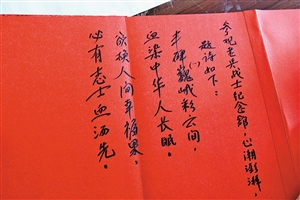 参观老兵战士纪念馆，心潮澎湃，
题诗如下：
(一)
丰碑巍峨彩云间，
血染中华人长眠。
欲摘人间幸福果，
必有志士血洒先。